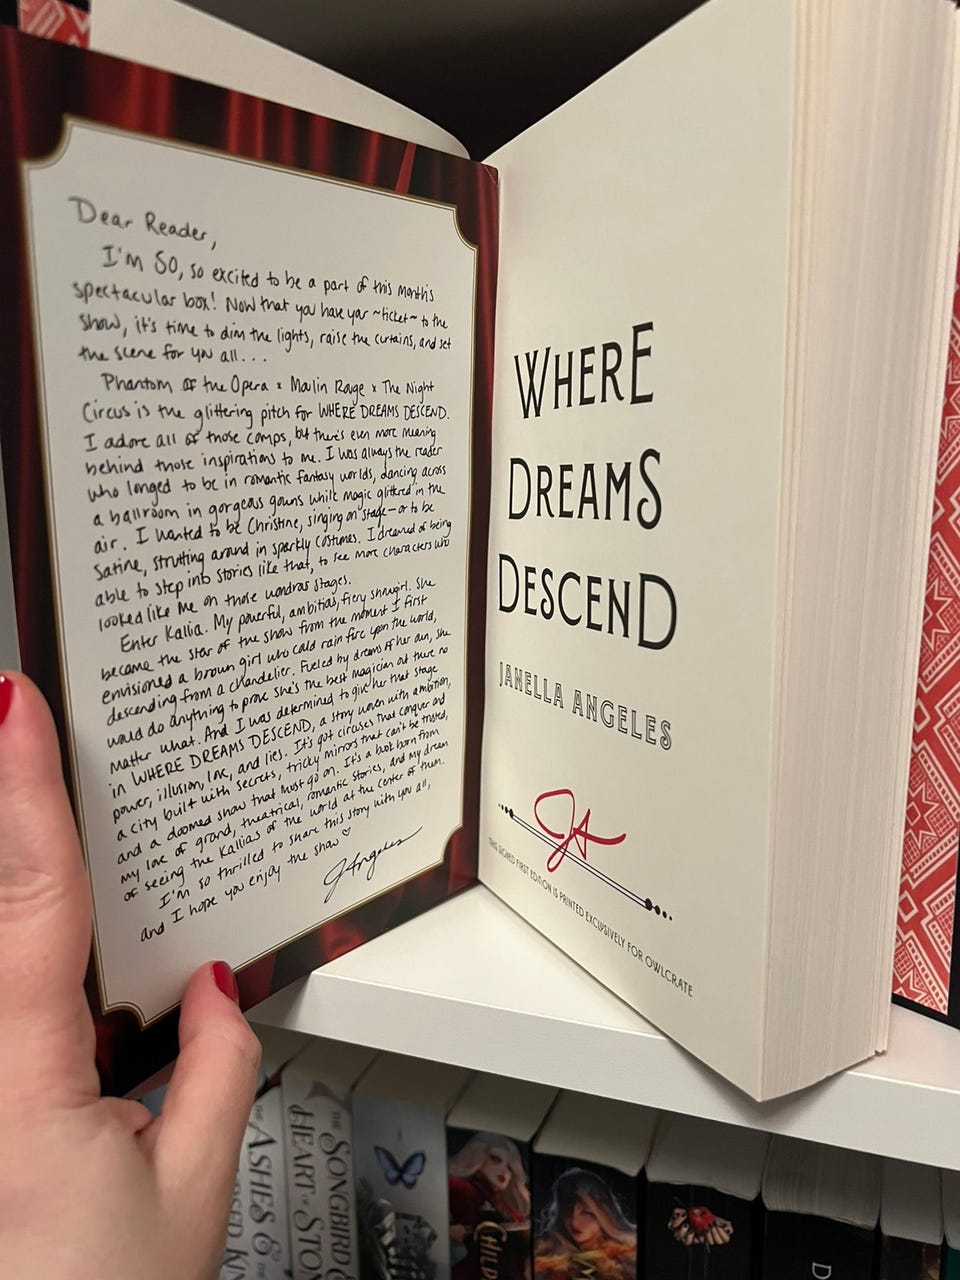 Dear Reader,
I'm SO, so excited to be a part of this month's
spectacular box! Now that you have your ~ticket~ to the
show, it's time to dim the lights, raise the curtains, and set
the scene for you all...
Phantom of the Opera x Moulin Rouge x The Night
Circus is the glittering pitch for WHERE DREAMS DESCEND.
I adore all of those comps, but there's even more meaning
behind those inspirations to me. I was always the reader
who longed to be in romantic fantasy worlds, dancing across
a ballroom in gorgeous gowns while magic glittered in the
air. I wanted to be Christine, singing on stage—or to be
Satine, strutting around in sparkly costumes. I dreamed of being
able to step into stories like that, to see more characters who
looked like me on those wondrous stages.
Enter Kallia. My powerful, ambitious, fiery showgirl. She
became the star of the show from the moment I first
envisioned a brown girl who could rain fire upon the world,
descending from a chandelier. Fueled by dreams of her own, she
would do anything to prove she's the best magician out there no
matter what. And I was determined to give her that stage
in WHERE DREAMS DESCEND, a story woven with ambition,
power, illusion, love, and lies. It's got circuses that conquer and
a city built with secrets, tricky mirrors that can't be trusted,
and a doomed show that must go on. It's a book born from
my love of grand, theatrical, romantic stories, and my dream
of seeing the Kallias of the world at the center of them.
I'm so thrilled to share this story with you all,
and I hope you enjoy the show ♡
J Angeles
WHERE
DREAMS
DESCEND
JANELLA ANGELES
JA
THIS SIGNED FIRST EDITION IS PRINTED EXCLUSIVELY FOR OWLCRATE
THE
ASHES &
THE
HEART OF STON
THE
SONGBIRD
CHILD
D